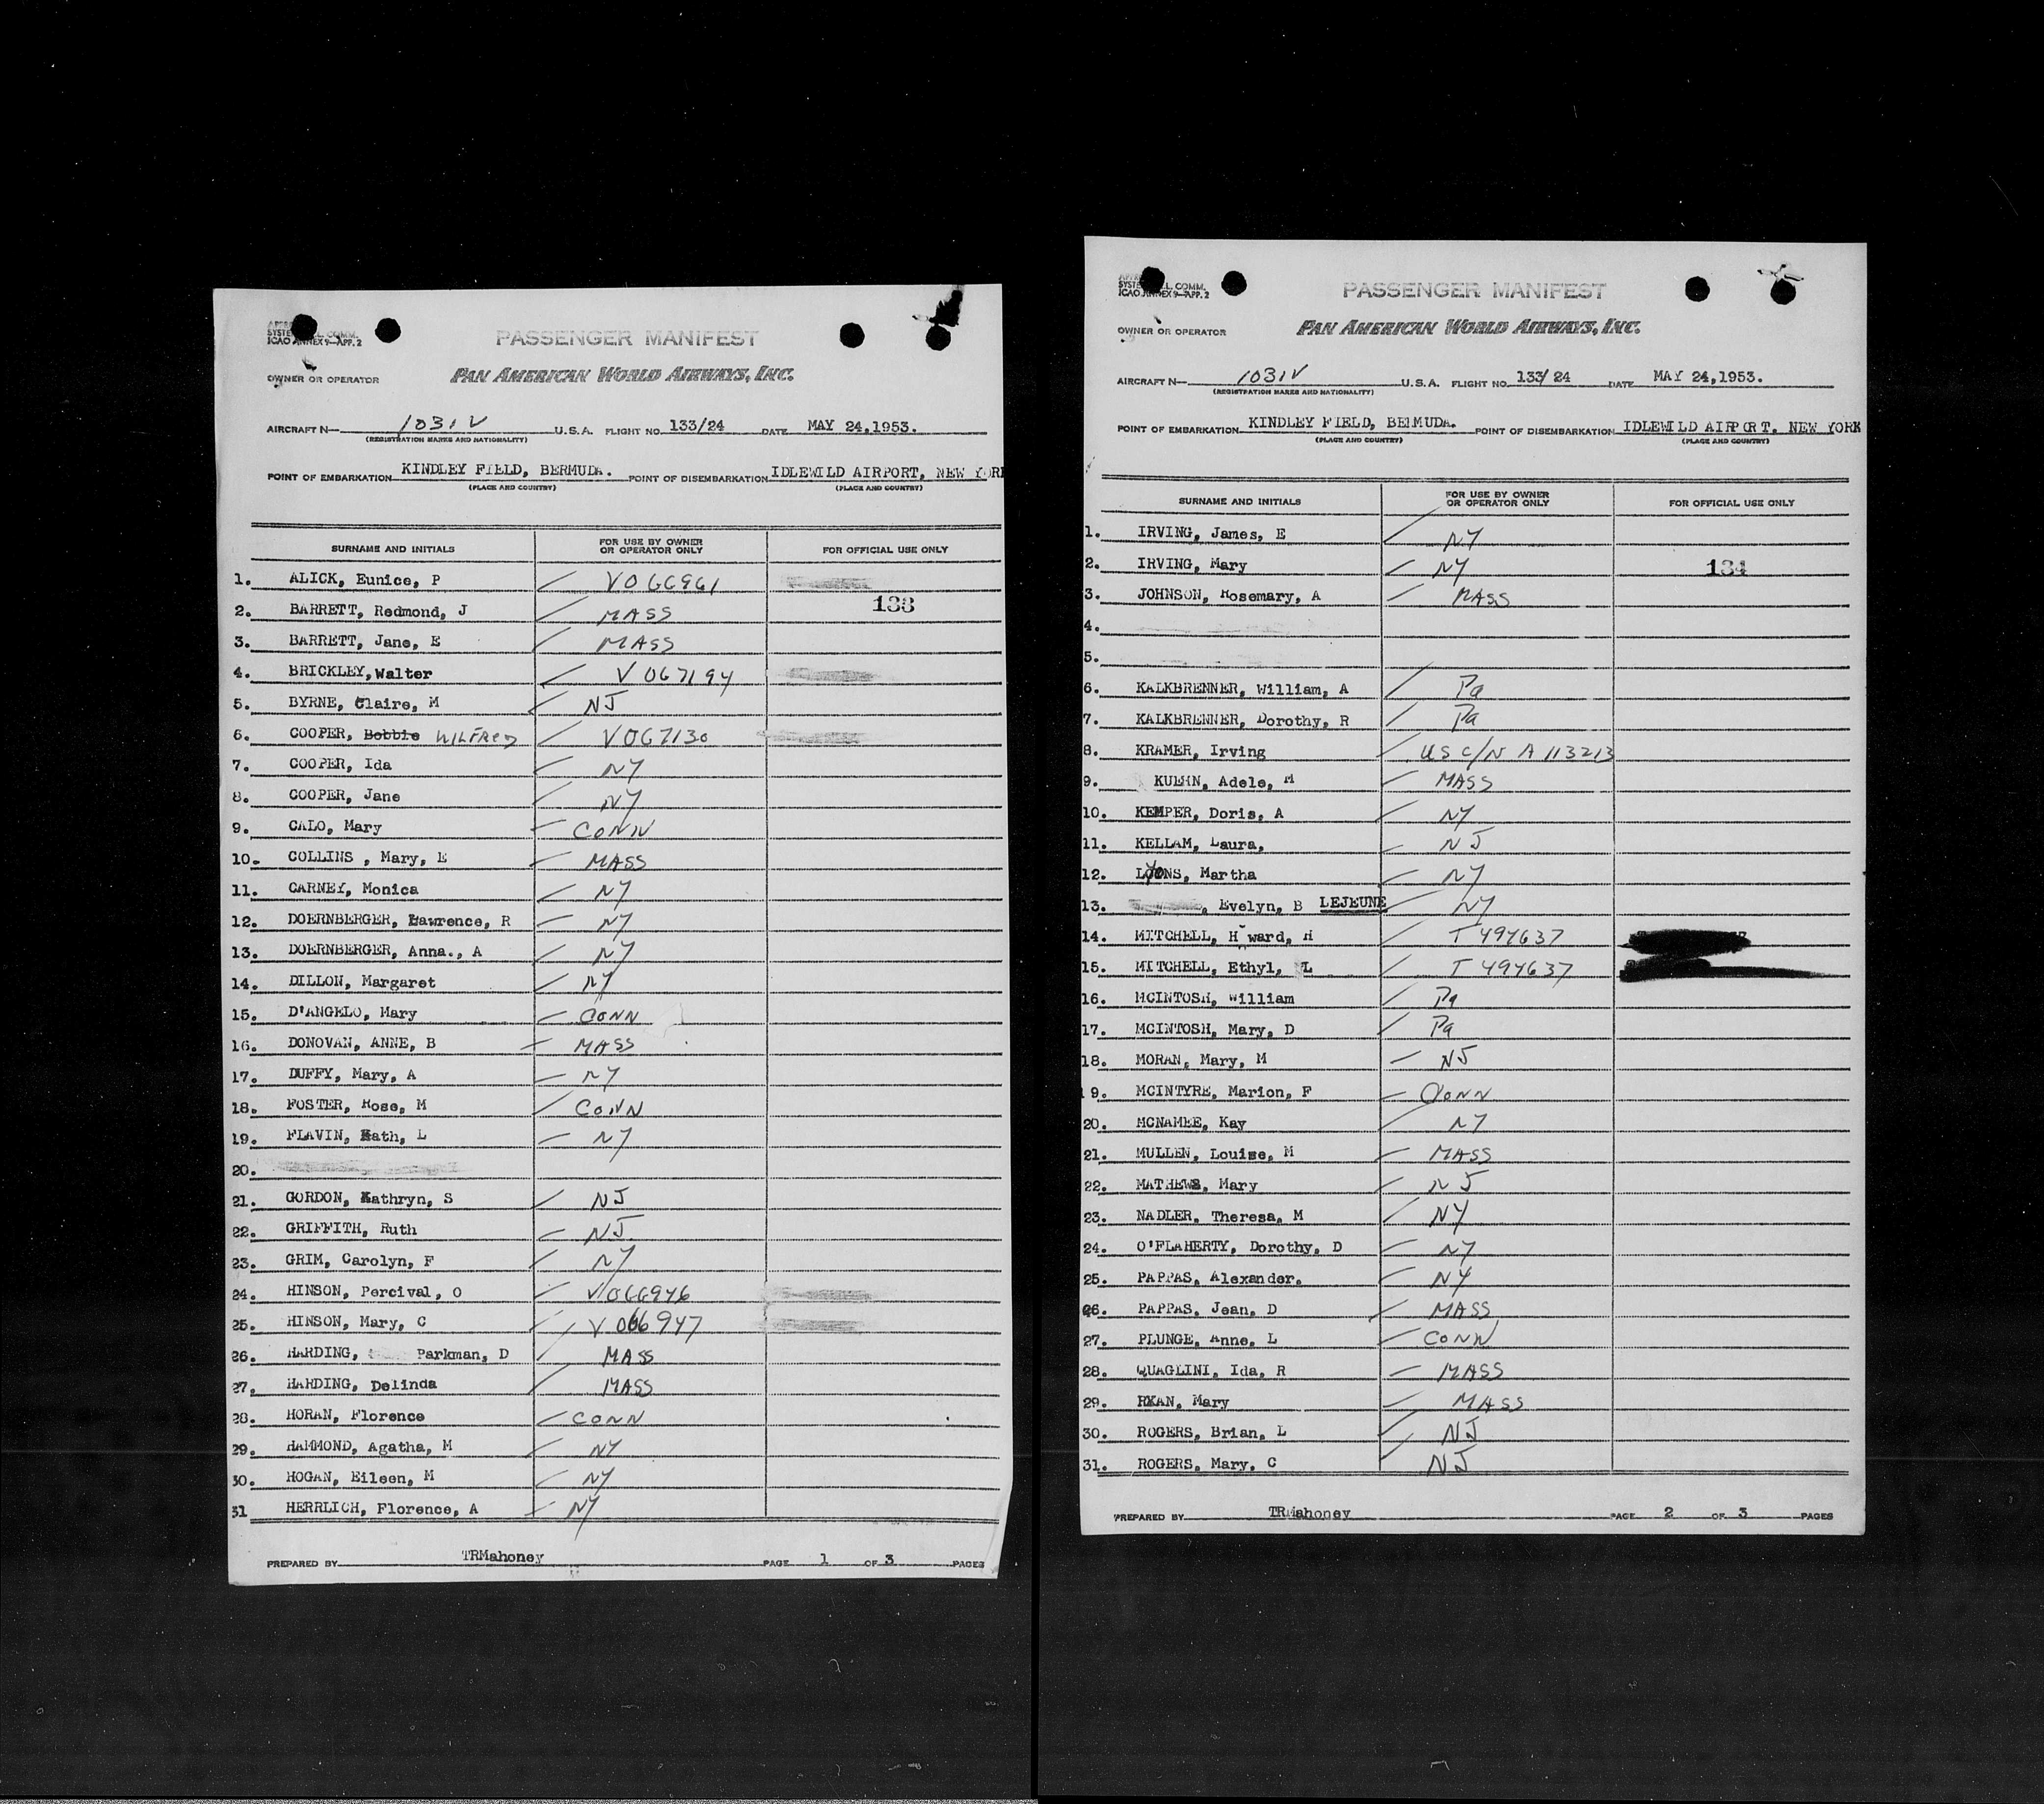 SYSTE L. COMM.
ICAO ANNEX 9—APP. 2
PASSENGER MANIFEST
OWNER OR OPERATOR PAN AMERICAN WORLD AIRWAYS, INC.
AIRCRAFT N— 1031V U.S.A. FLIGHT NO. 133/24 DATE MAY 24,1953.
(REGISTRATION MARKS AND NATIONALITY)
POINT OF EMBARKATION KINDLEY FIELD, BERMUDA. POINT OF DISEMBARKATION IDLEWILD AIRPORT, NEW YORK
(PLACE AND COUNTRY) (PLACE AND COUNTRY)
SURNAME AND INITIALS FOR USE BY OWNER OR OPERATOR ONLY FOR OFFICIAL USE ONLY
1. ALICK, Eunice, P V066961
133
2. BARRETT, Redmond, J MASS
3. BARRETT, Jane, E MASS
4. BRICKLEY, Walter V 067194
5. BYRNE, Claire, M NJ
6. COOPER, Bobbie WILFRED V067130
7. COOPER, Ida NY
8. COOPER, Jane NY
9. CALO, Mary CONN
10. COLLINS , Mary, E MASS
11. CARNEY, Monica NY
12. DOERNBERGER, Lawrence, R NY
13. DOERNBERGER, Anna., A NY
14. DILLON, Margaret NY
15. D'ANGELO, Mary CONN
16. DONOVAN, ANNE, B MASS
17. DUFFY, Mary, A NY
18. FOSTER, Rose, M CONN
19. FLAVIN, Kath, L NY
20.
21. GORDON, Kathryn, S NJ
22. GRIFFITH, Ruth NJ
23. GRIM, Carolyn, F NY
24. HINSON, Percival, O V066946
25. HINSON, Mary, C V 066947
26. HARDING, Parkman, D MASS
27. HARDING, Delinda MASS
28. HORAN, Florence CONN
29. HAMMOND, Agatha, M NY
30. HOGAN, Eileen, M NY
31 HERRLICH, Florence, A NY
PREPARED BY TRMahoney PAGE 1 OF 3 PAGES
SYSTE L. COMM.
ICAO ANNEX 9—APP. 2
PASSENGER MANIFEST
OWNER OR OPERATOR PAN AMERICAN WORLD AIRWAYS, INC.
AIRCRAFT N— 1031V U.S.A. FLIGHT NO. 133/24 DATE MAY 24,1953.
(REGISTRATION MARKS AND NATIONALITY)
POINT OF EMBARKATION KINDLEY FIELD, BERMUDA. POINT OF DISEMBARKATION IDLEWILD AIRPORT, NEW YORK
(PLACE AND COUNTRY) (PLACE AND COUNTRY)
SURNAME AND INITIALS FOR USE BY OWNER OR OPERATOR ONLY FOR OFFICIAL USE ONLY
1. IRVING, James, E NY
2. IRVING, Mary NY 134
3. JOHNSON, Rosemary, A MASS
4.
5.
6. KALKBRENNER, William, A Pa
7. KALKBRENNER, Dorothy, R Pa
8. KRAMER, Irving US C/N A 113213
9. KUEHN, Adele, M MASS
10. KEMPER, Doris, A NY
11. KELLAM, Laura, NJ
12. LYONS, Martha NY
13. , Evelyn, B LEJEUNE NY
14. MITCHELL, Howard, H T 494637
15. MITCHELL, Ethyl, L T 494637
16. MCINTOSH, William Pa
17. MCINTOSH, Mary, D Pa
18. MORAN, Mary, M NJ
19. MCINTYRE, Marion, F CONN
20. MCNAMEE, Kay NY
21. MULLEN, Louise, M MASS
22. MATHEWS, Mary NJ
23. NADLER, Theresa, M NY
24. O'FLAHERTY, Dorothy, D NY
25. PAPPAS, Alexander, NY
26. PAPPAS, Jean, D MASS
27. PLUNGE, Anne, L CONN
28. QUAGLINI, Ida, R MASS
29. RYAN, Mary MASS
30. ROGERS, Brian, L NJ
31. ROGERS, Mary, C NJ
PREPARED BY TRMahoney PAGE 2 OF 3 PAGES